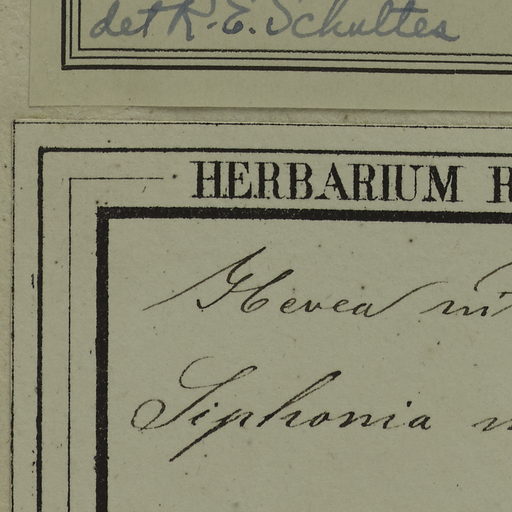 det R. E. Schultes
HERBARIUM R
Hevea ni
Siphonia n